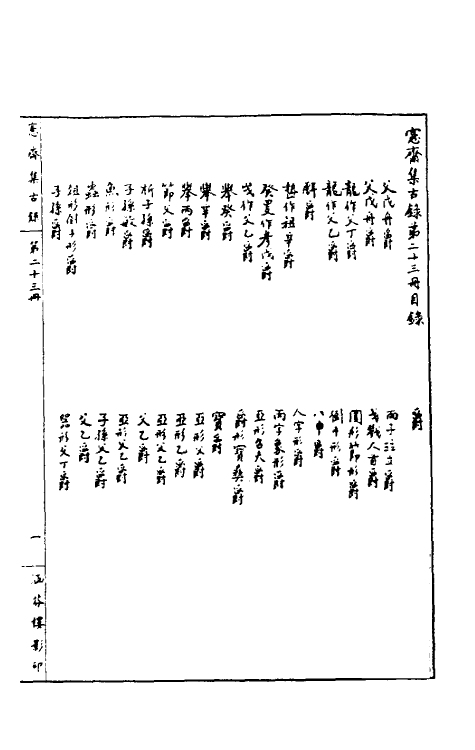 愙齋集古錄第二十三冊目錄
爵
父戊舟爵
兩子拉立爵
父戊舟爵
戈戟人首爵
龍作父丁爵
圓形節形爵
龍作父乙爵
倒干形爵
爵
八中爵
作祖辛爵
人字形爵
癸𠭯作考戊爵
丙字象形爵
作父乙爵
亞形夫爵
舉癸爵
爵形寶奠爵
舉辛爵
寶爵
舉丙爵
亞形父爵
節父爵
亞形乙爵
析子孫爵
亞形父乙爵
子孫形爵
父乙爵
魚形爵
亞形父乙爵
蟲形爵
子孫父乙爵
俎形倒子形爵
父乙爵
子孫爵
形父丁爵
愙齋集古錄 第二十三冊 一 涵芬樓影印